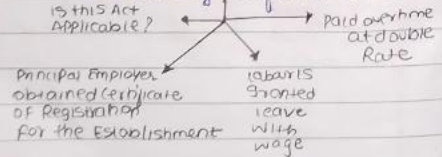 is this Act
Applicable?
Paid overtime
at double
Rate
Principal Employer
obtained Certificate
of Registration
for the Establishment
labar is
granted
leave
with
wage